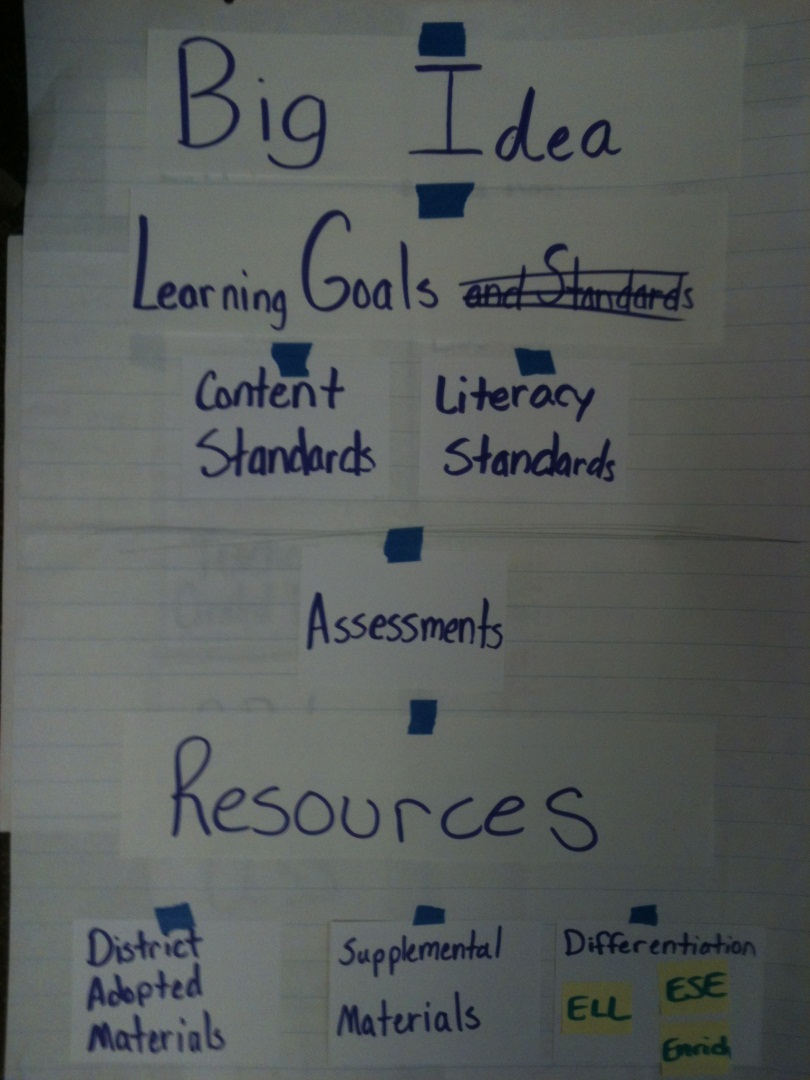 Big Idea
Learning Goals and Standards
Content Literacy
Standards Standards
Assessments
Resources
District
Adopted
Materials
Supplemental
Materials
Differentiation
ELL ESE
Enrich